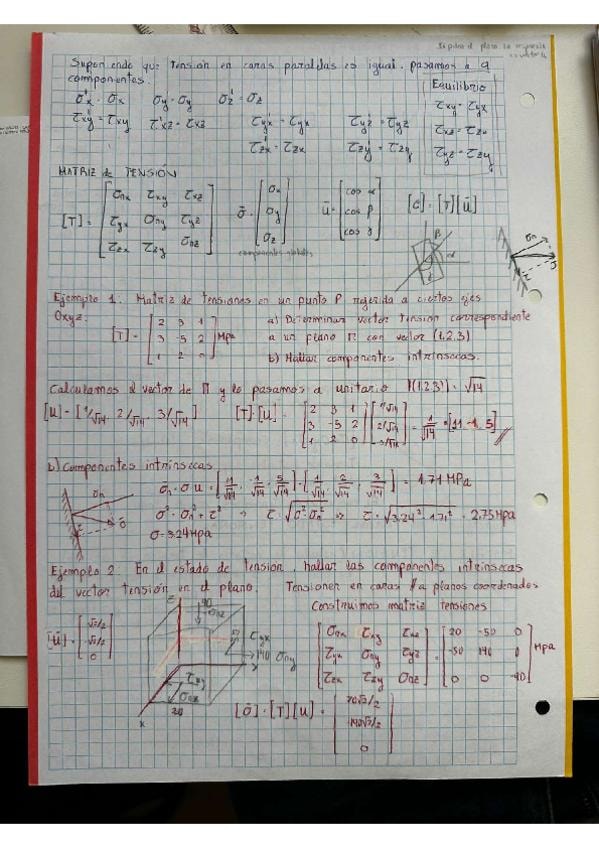 Suponiendo que tensión en caras paralelas es igual, pasamos a 9
componentes.
σ'x = σx  σy = σy  σz' = σz
τxy' = τxy  τ'xz = τxz  τyx' = τyx  τyz' = τyz
τzx' = τzx  τzy' = τzy
Equilibrio
τxy = τyx
τxz = τzx
τyz = τzy
MATRIZ de TENSIÓN
[T] = [σnx τxy τxz; τyx σny τyz; τzx τzy σnz]  σ̄ = [σx; σy; σz]  ū = [cos α; cos β; cos γ]  [σ] = [T][ū]
componentes globales
Ejemplo 1: Matriz de tensiones en un punto P referida a ciertos ejes
Oxyz:
[T] = [2 3 1; 3 -5 2; 1 2 0] MPa
a) Determinar vector tensión correspondiente
a un plano π con vector (1,2,3)
b) Hallar componentes intrínsecas.
Calculamos el vector de π y lo pasamos a unitario |(1,2,3)| = √14
[u] = [1/√14, 2/√14, 3/√14]  [T]·[u] = [2 3 1; 3 -5 2; 1 2 0][1/√14; 2/√14; 3/√14] = 1/√14 · [11, -1, 5]
b) Componentes intrínsecas
σn = σ·u = [11/√14, -1/√14, 5/√14]·[1/√14, 2/√14, 3/√14] = 1.71 MPa
σ² = σn² + τ² → τ = √σ²-σn² ⇒ τ = √3.24²-1.71² = 2.75 MPa
σ = 3.24 MPa
Ejemplo 2: En el estado de tensión, hallar las componentes intrínsecas
del vector tensión en el plano. Tensiones en caras //a planos coordenados
Construimos matriz tensiones
[ū] = [√2/2; -√2/2; 0]
[σnx τxy τxz; τyx σny τyz; τzx τzy σnz] = [20 -50 0; -50 140 0; 0 0 -90] MPa
z
90
σnz
τyx
140 σny
τxy
σnx
20
x
[σ̄] = [T][u] = [70√2/2; -190√2/2; 0]